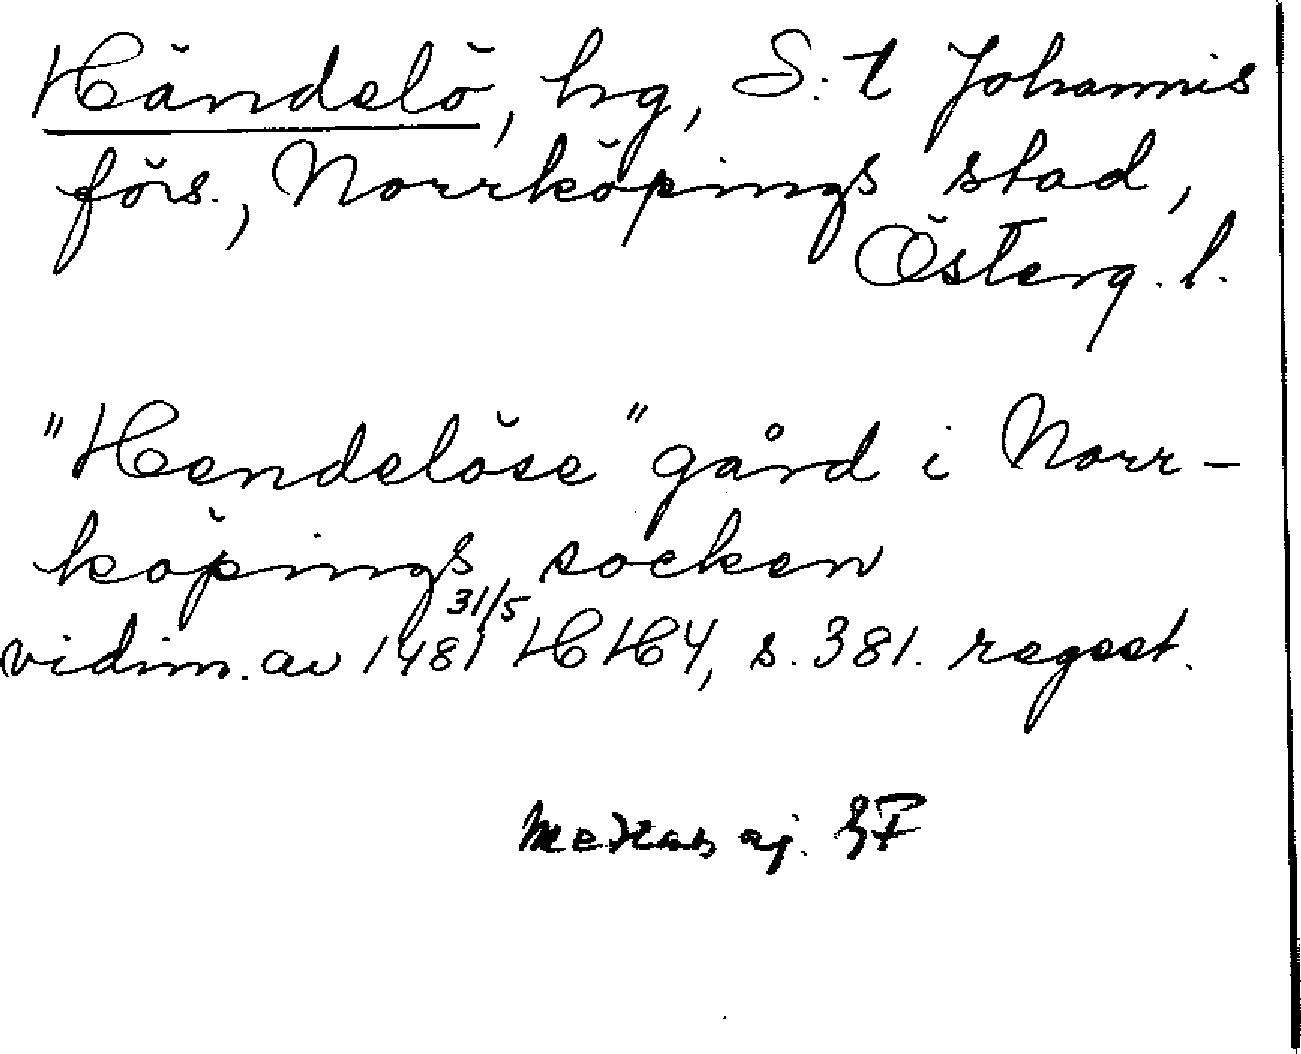 Händelö, hg, S:t Johannis
förs., Norrköpings stad,
Österg. l.
"Hendelöse" gård i Norr-
köpings socken
vidim. av 1481 31/5 HH4, s. 381. regest.
aj. EF